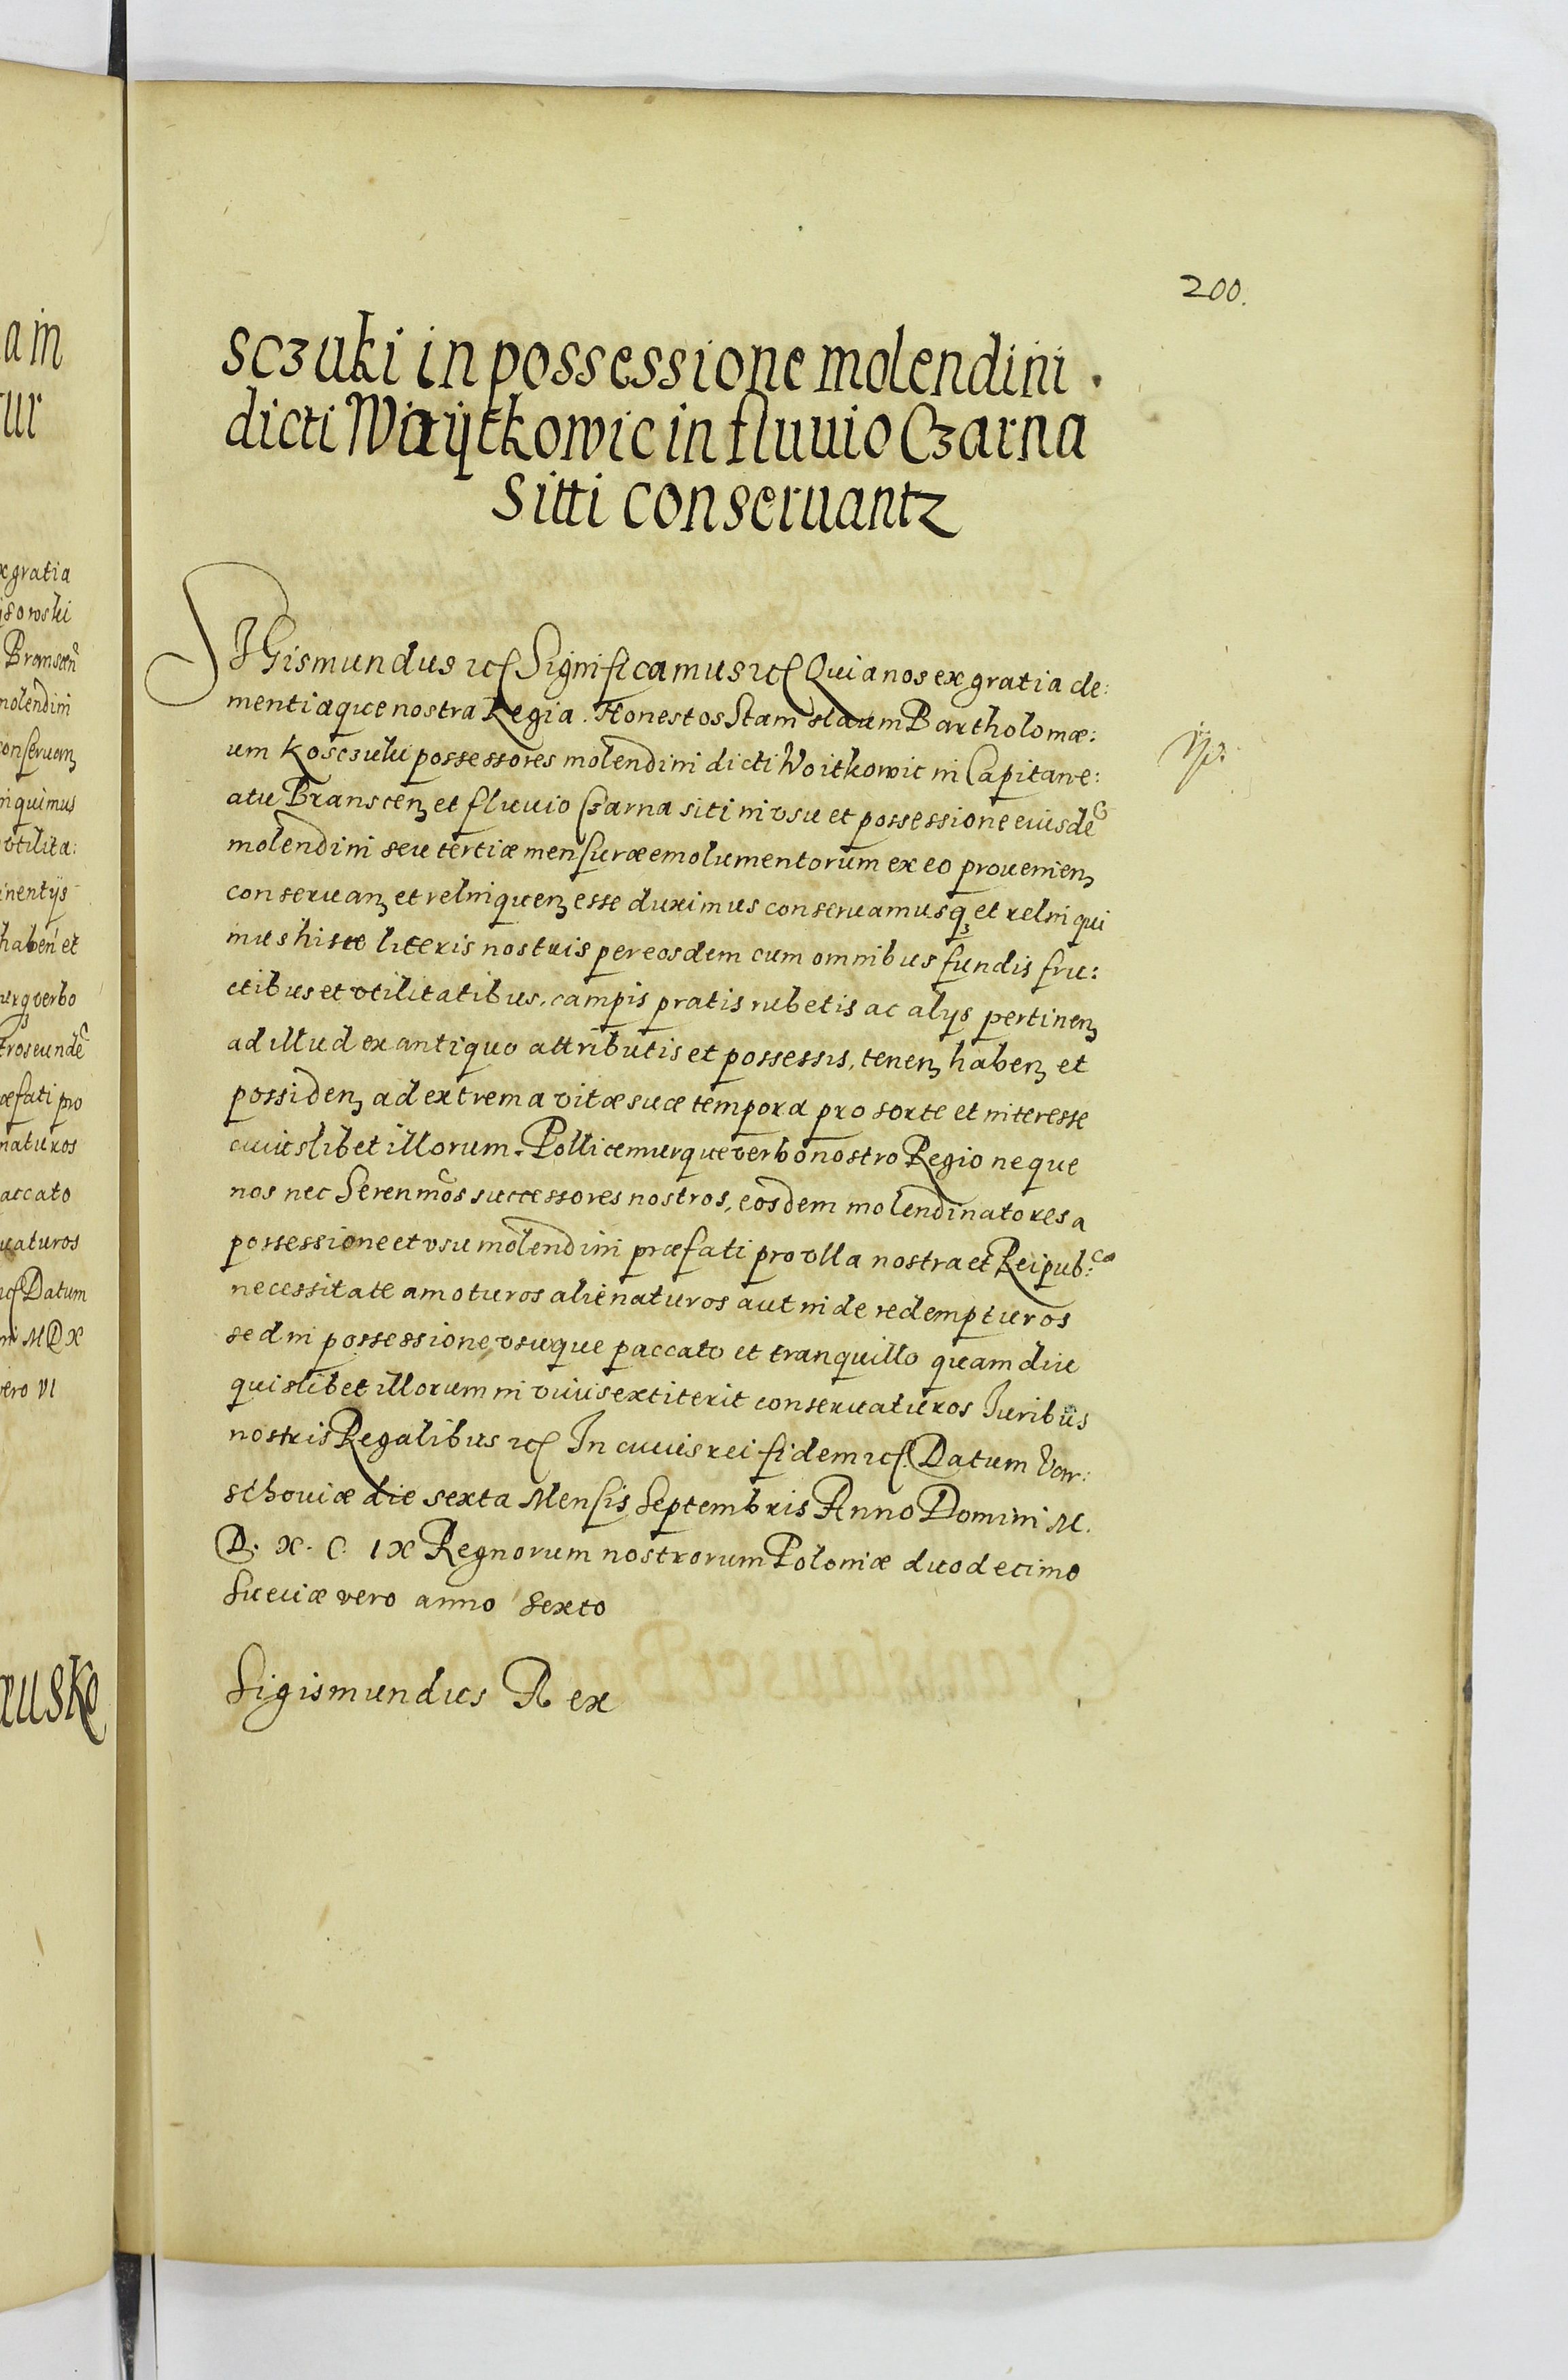 200.
sczuki in possessione molendini.
dicti Woytkowic in fluuio Czarna
Sitti conseruantz
SIGismundus etc Significamus etc Quia nos ex gratia cle:
mentiaque nostra Regia. Honestos Stanislaum Bartholomæ:
um Kosczuki possessores molendini dicti Woitkowic in Capitane:
atu Branscenz et fluuio Czarna siti in vsu et possessione eiusdē
molendini seu tertiæ mensuræ emolumentorum ex eo prouenienz
conseruanz et relinquenz esse duximus conseruamusqz et relinqui
mus hisce literis nostris per eosdem cum omnibus fundis fru:
ctibus et vtilitatibus, campis pratis rubetis ac alijs pertinenz
ad illud ex antiquo attributis et possessis, tenenz habenz et
possidenz ad extrema vitæ suæ tempora pro sorte et interesse
cuiuslibet illorum. Pollicemurque verbo nostro Regio neque
nos nec Serenmōs successores nostros, eosdem molendinatores a
possessione et vsu molendini præfati pro vlla nostra et Reipub:cæ
necessitate amoturos alienaturos aut inde redempturos
sed in possessione, vsuque paccato et tranquillo quamdiu
quislibet illorum in viuis extiterit conseruaturos Iuribus
nostris Regalibus etc In cuius rei fidem etc. Datum Var:
schouiæ die sexta Mensis Septembris Anno Domini M.
D. X. C. IX Regnorum nostrorum Poloniæ duodecimo
Sueciæ vero anno sexto
Sigismundus Rex
a in
ur
x gratia
isowski
Branscen
molendini
conseruanz
inquimus
vtilita:
inentijs
haben et
urqz verbo
tros eundē
æfati pro
naturos
accato
uaturos
etc Datum
ni MDX
vero VI
auske